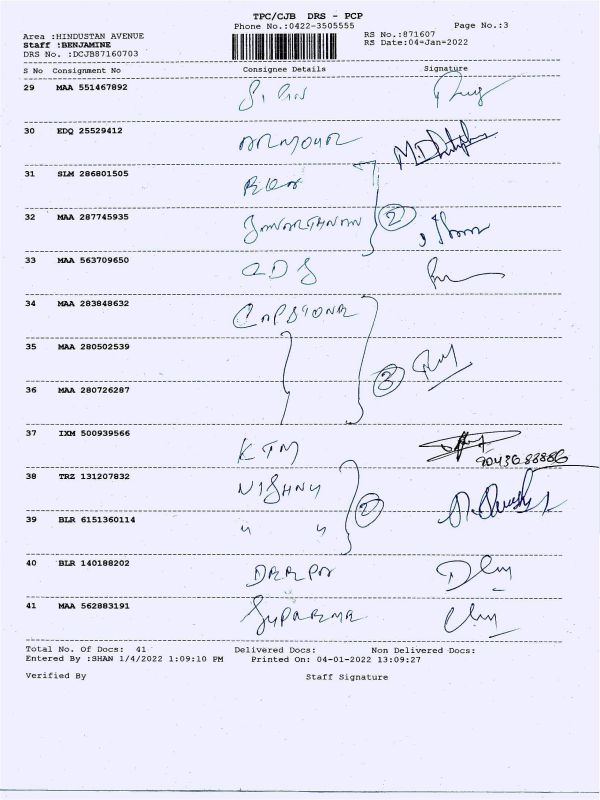 TPC/CJB DRS - PCP
Phone No.:0422-3505555 Page No.:3
Area :HINDUSTAN AVENUE RS No.:871607
Staff :BENJAMINE RS Date:04=Jan=2022
DRS No. :DCJB87160703
S No Consignment No Consignee Details Signature
29 MAA 551467892
30 EDQ 25529412 ARMOUR
31 SLM 286801505
32 MAA 287745935 JANARTHANAN 2
33 MAA 563709650 ADS
34 MAA 283848632 CAPSTONE
35 MAA 280502539
36 MAA 280726287 3
37 IXM 500939566 KTM
38 TRZ 131207832 VISHNU
39 BLR 6151360114 " " 2
40 BLR 140188202 DEEPA
41 MAA 562883191 SUPREME
Total No. Of Docs: 41 Delivered Docs: Non Delivered Docs:
Entered By :SHAN 1/4/2022 1:09:10 PM Printed On: 04-01-2022 13:09:27
Verified By Staff Signature